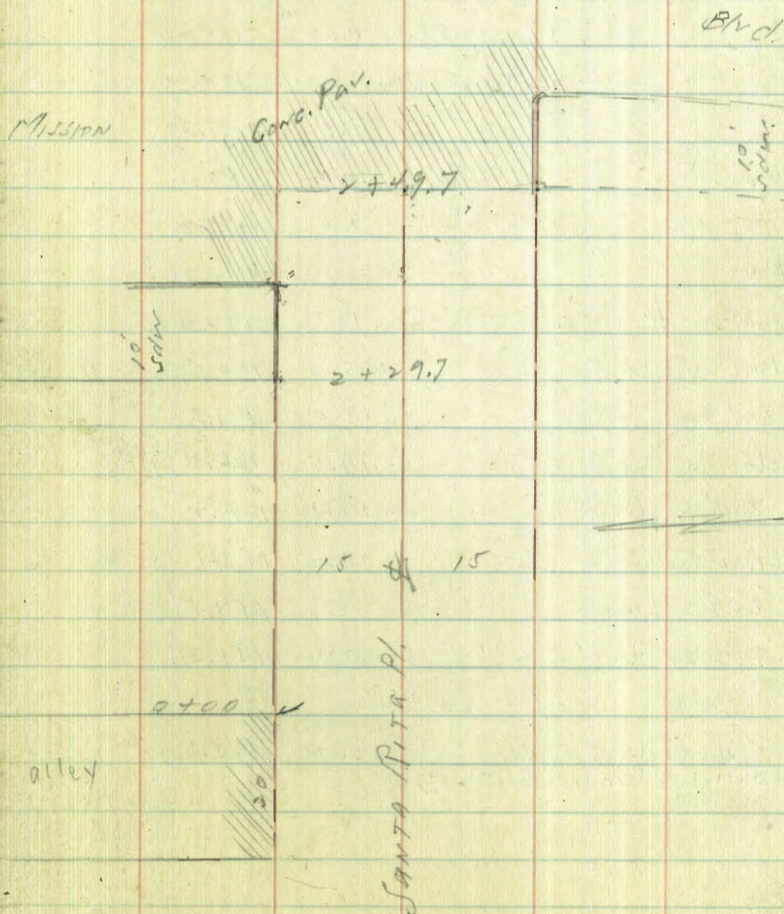 Blvd.
Mission
Conc. Pav.
2+49.7
10' Sdw.
10' Sdw
2+29.7
15 ℄ 15
0+00
alley
20
Santa Rita Pl.